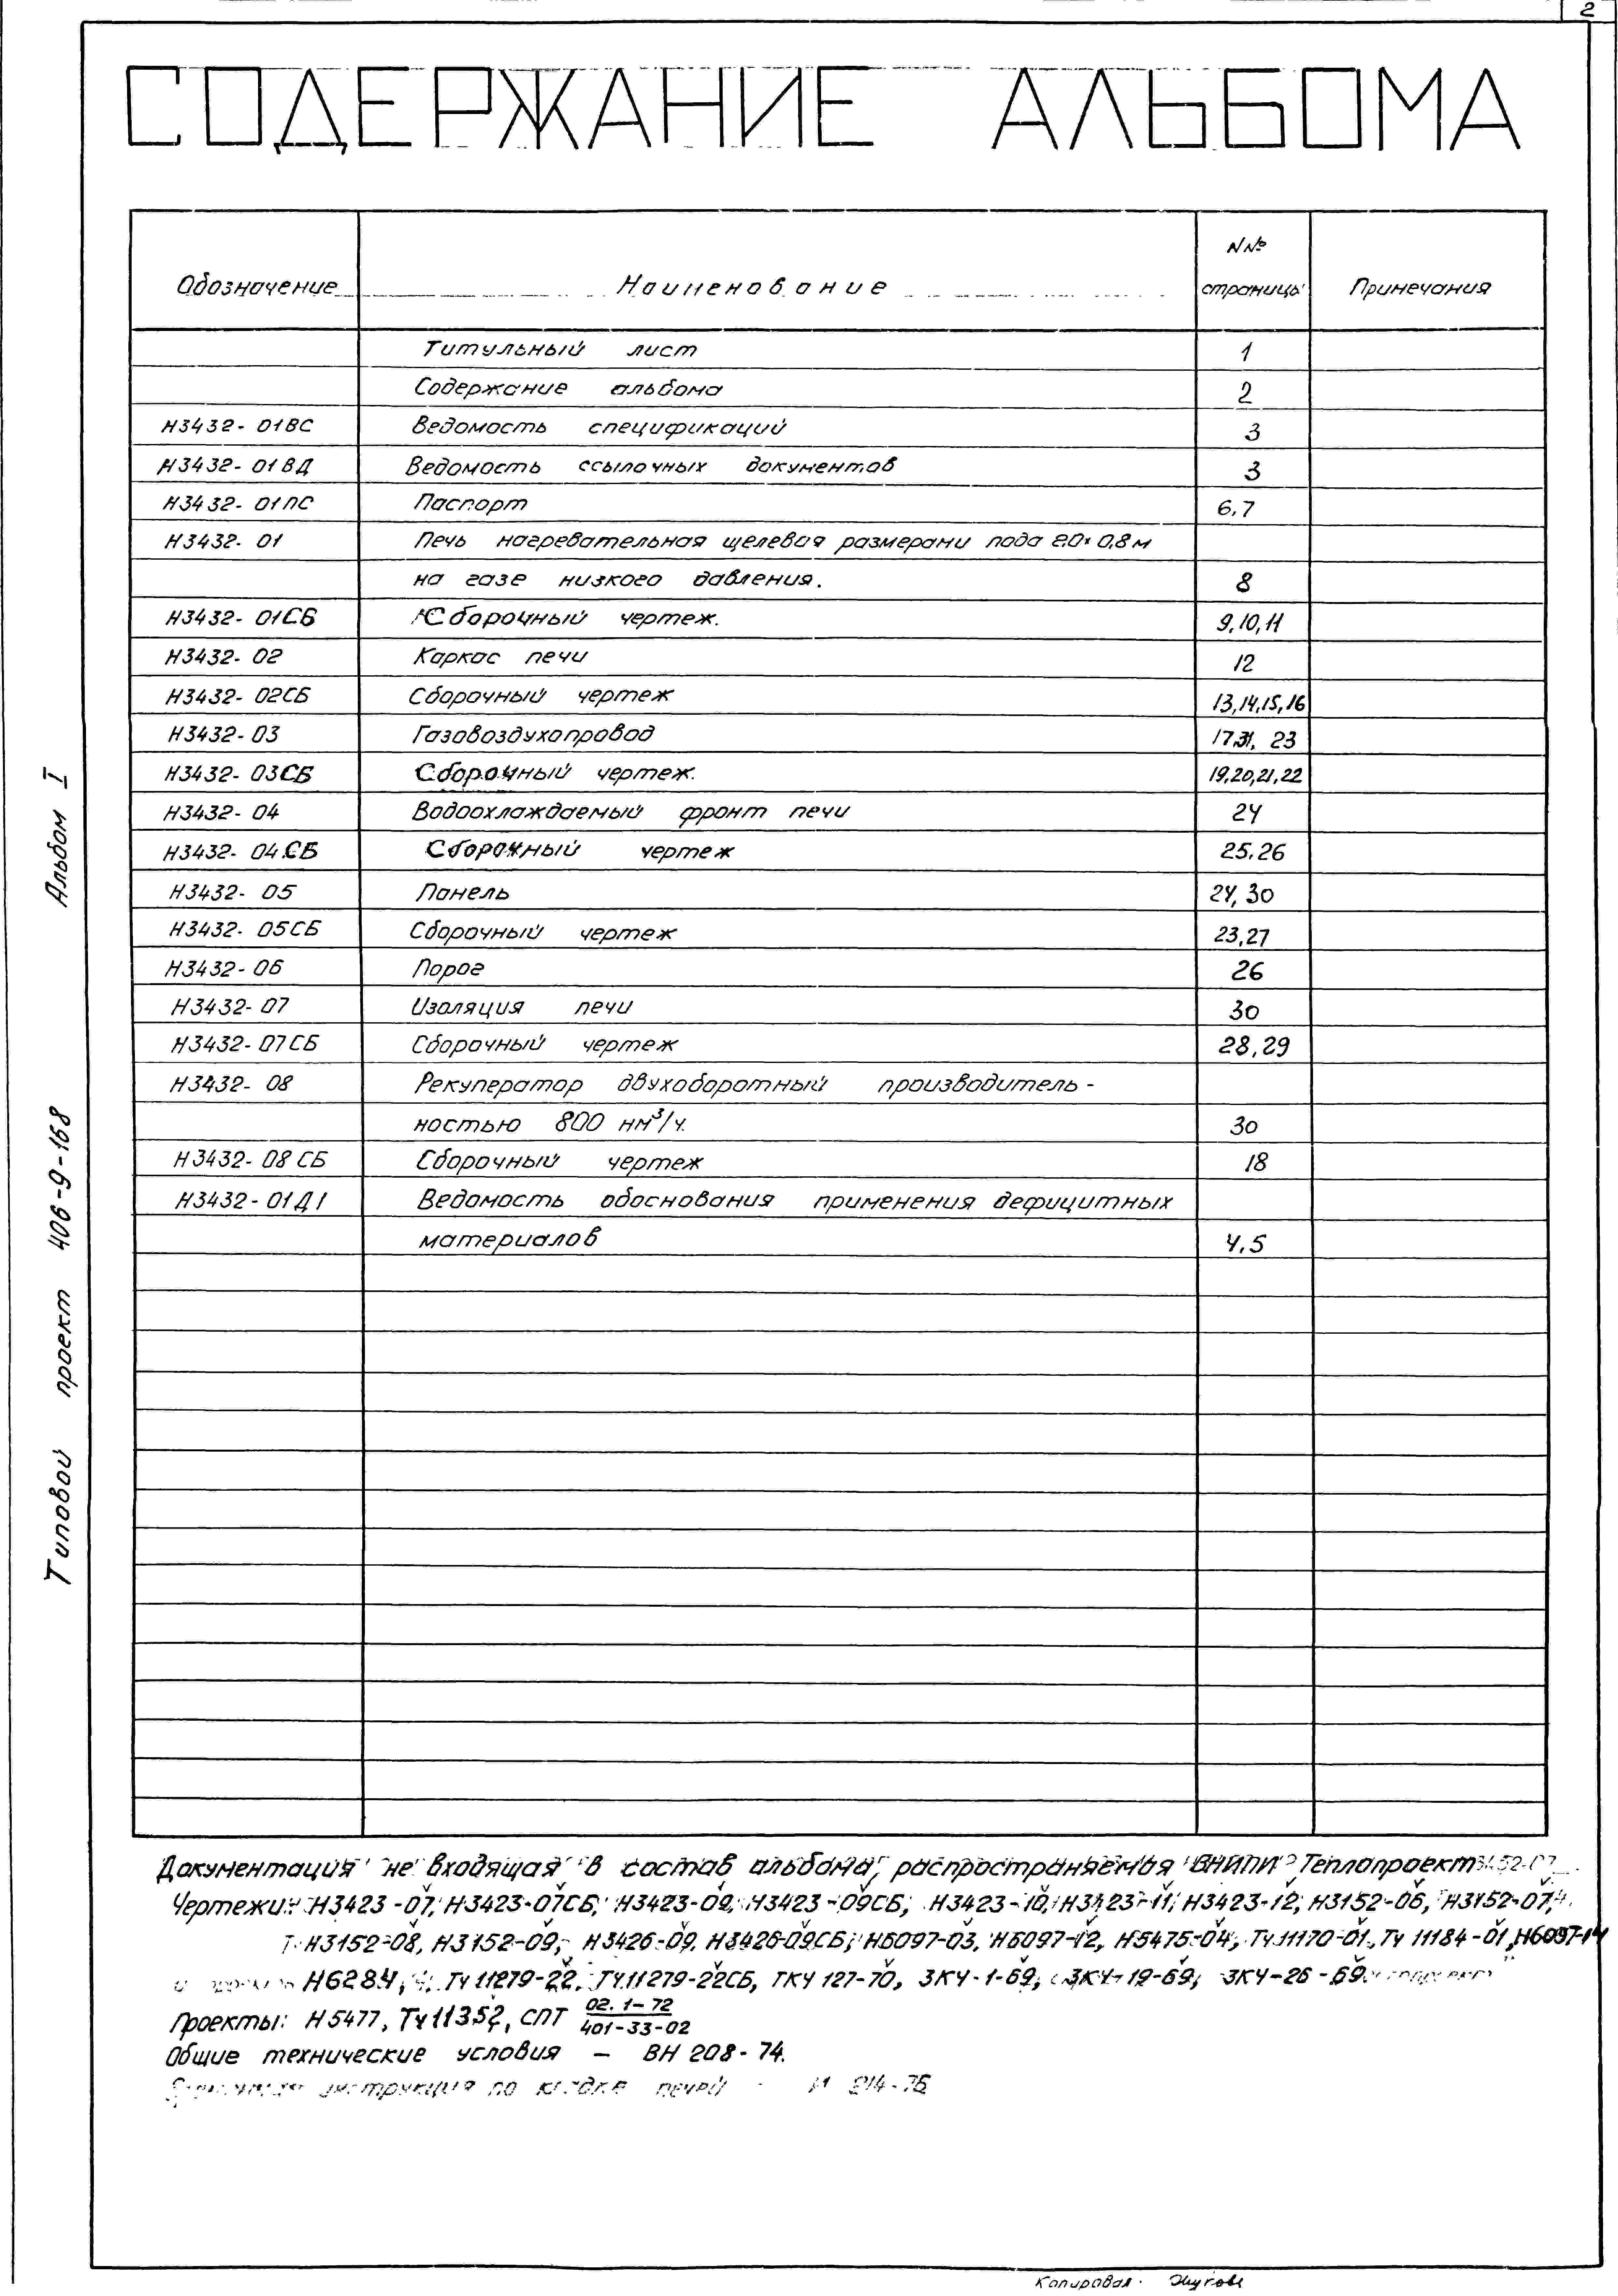 2
СОДЕРЖАНИЕ АЛЬБОМА
Обозначение Наименование N№ страницы Примечания
Титульный лист 1
Содержание альбома 2
Н3432-01ВС Ведомость спецификаций 3
Н3432-01ВД Ведомость ссылочных документов 3
Н3432-01ПС Паспорт 6,7
Н3432-01 Печь нагревательная щелевая размерами пода 2.0×0,8м
на газе низкого давления. 8
Н3432-01СБ Сборочный чертеж. 9,10,11
Н3432-02 Каркас печи 12
Н3432-02СБ Сборочный чертеж 13,14,15,16
Н3432-03 Газовоздухопровод 17,31, 23
Н3432-03СБ Сборочный чертеж. 19,20,21,22
Н3432-04 Водоохлаждаемый фронт печи 24
Н3432-04.СБ Сборочный чертеж 25,26
Н3432-05 Панель 24,30
Н3432-05СБ Сборочный чертеж 23,27
Н3432-06 Порог 26
Н3432-07 Изоляция печи 30
Н3432-07СБ Сборочный чертеж 28,29
Н3432-08 Рекуператор двухоборотный производитель-
ностью 800 нм³/ч. 30
Н3432-08СБ Сборочный чертеж 18
Н3432-01Д1 Ведомость обоснования применения дефицитных
материалов 4,5
Документация не входящая в состав альбома, распространяемая ВНИПИ Теплопроект
Чертежи: Н3423-07, Н3423-07СБ, Н3423-09, Н3423-09СБ, Н3423-10, Н3423-11, Н3423-12, Н3152-06, Н3152-07,
Н3152-08, Н3152-09, Н3426-09, Н3426-09СБ, Н6097-03, Н6097-12, Н5475-04, Тч11170-01, Тч 11184-01, Н6097-14
Н6284, Тч11279-22, Тч.11279-22СБ, ТКЧ 127-70, ЗКЧ-1-69, ЗКЧ-19-69, ЗКЧ-26-69
Проекты: Н5477, Тч11352, СПТ 02.1-72/401-33-02
Общие технические условия – ВН 208-74.
инструкция по кладке печей И 214-76
Альбом I
Типовой проект 406-9-168
Копировал: